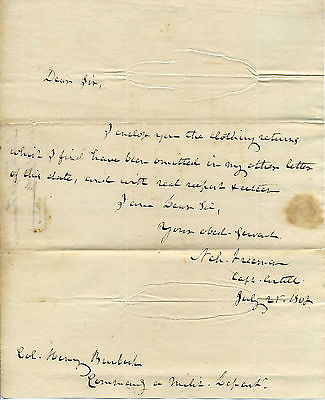 Dear Sir,
I enclose you the clothing returns
which I find have been omitted in my other letter
of this date, and with real respect & esteem
I am Dear Sir,
Your obed. Servant
Neh. Freeman
Capt. Artill.
July 21. 180
Col. Henry Burbeck
Command. a Milit. Depart.